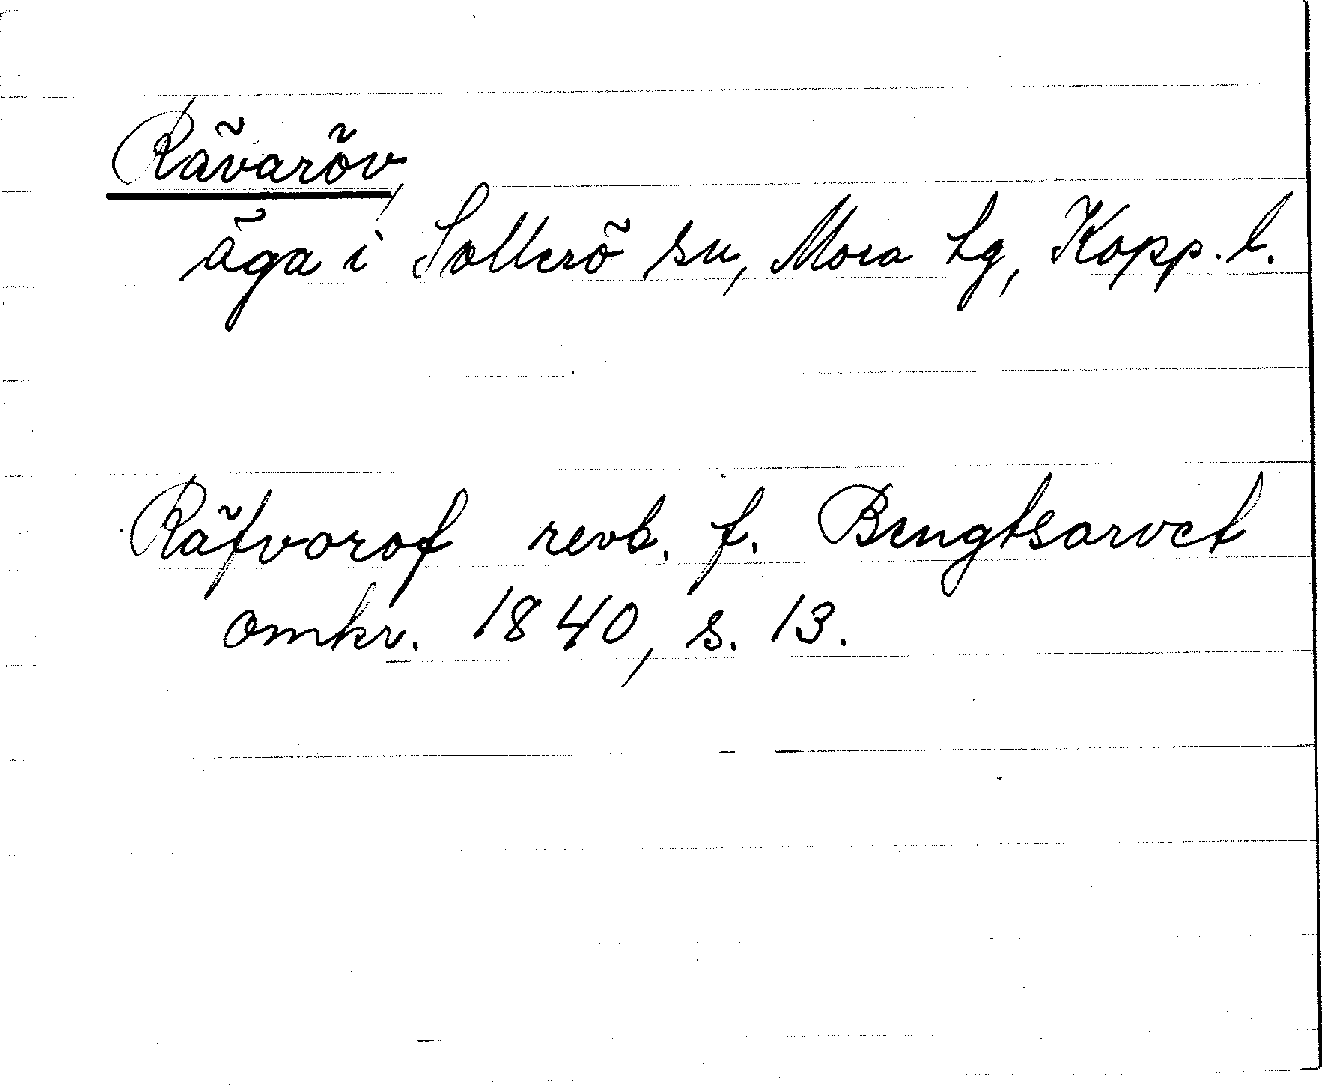 Rävaröv,
äga i Sollerö sn, Mora tg, Kopp. l.
Räfvorof revb. f. Bengtsarvet
omkr. 1840, s. 13.